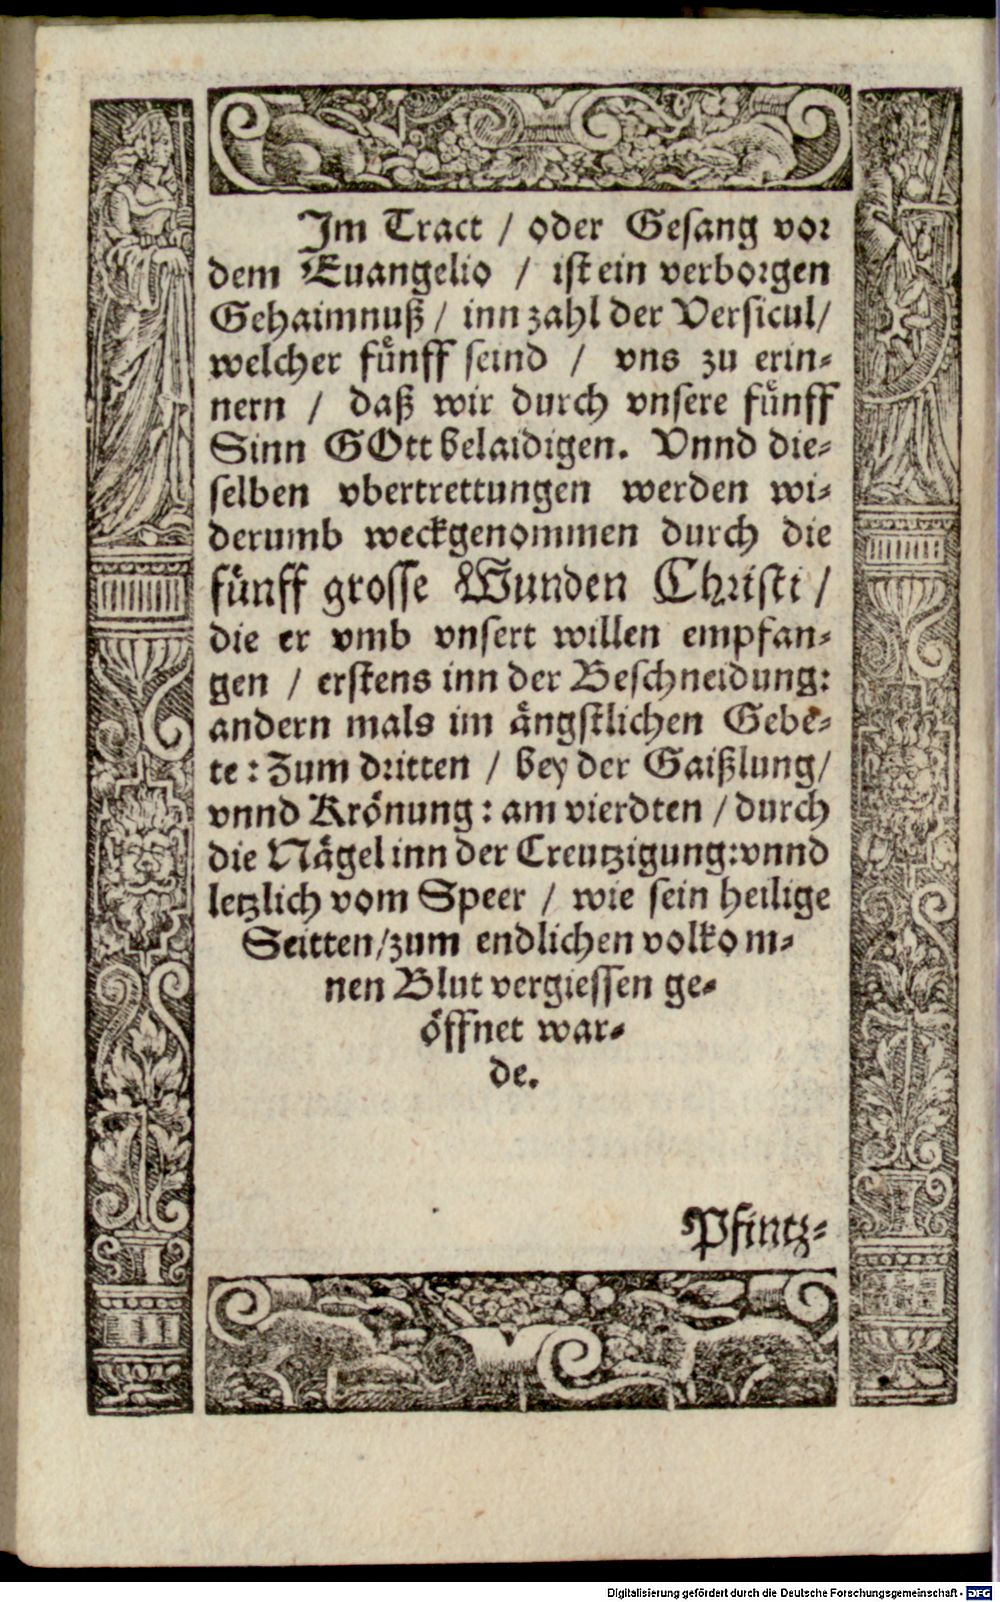 Im Tract / oder Gesang vor
dem Euangelio / ist ein verborgen
Gehaimnuß / inn zahl der Versicul /
welcher fünff seind / vns zu erin-
nern / daß wir durch vnsere fünff
Sinn GOtt belaidigen. Vnnd die-
selben vbertrettungen werden wi-
derumb weckgenommen durch die
fünff grosse Wunden Christi /
die er vmb vnsert willen empfan-
gen / erstens inn der Beschneidung:
andern mals im ängstlichen Gebe-
te: Zum dritten / bey der Gaißlung /
vnnd Krönung: am vierdten / durch
die Nägel inn der Creutzigung: vnnd
letzlich vom Speer / wie sein heilige
Seitten / zum endlichen volkom-
nen Blut vergiessen ge-
öffnet war-
de.
Pfintz-
Digitalisierung gefördert durch die Deutsche Forschungsgemeinschaft - DFG